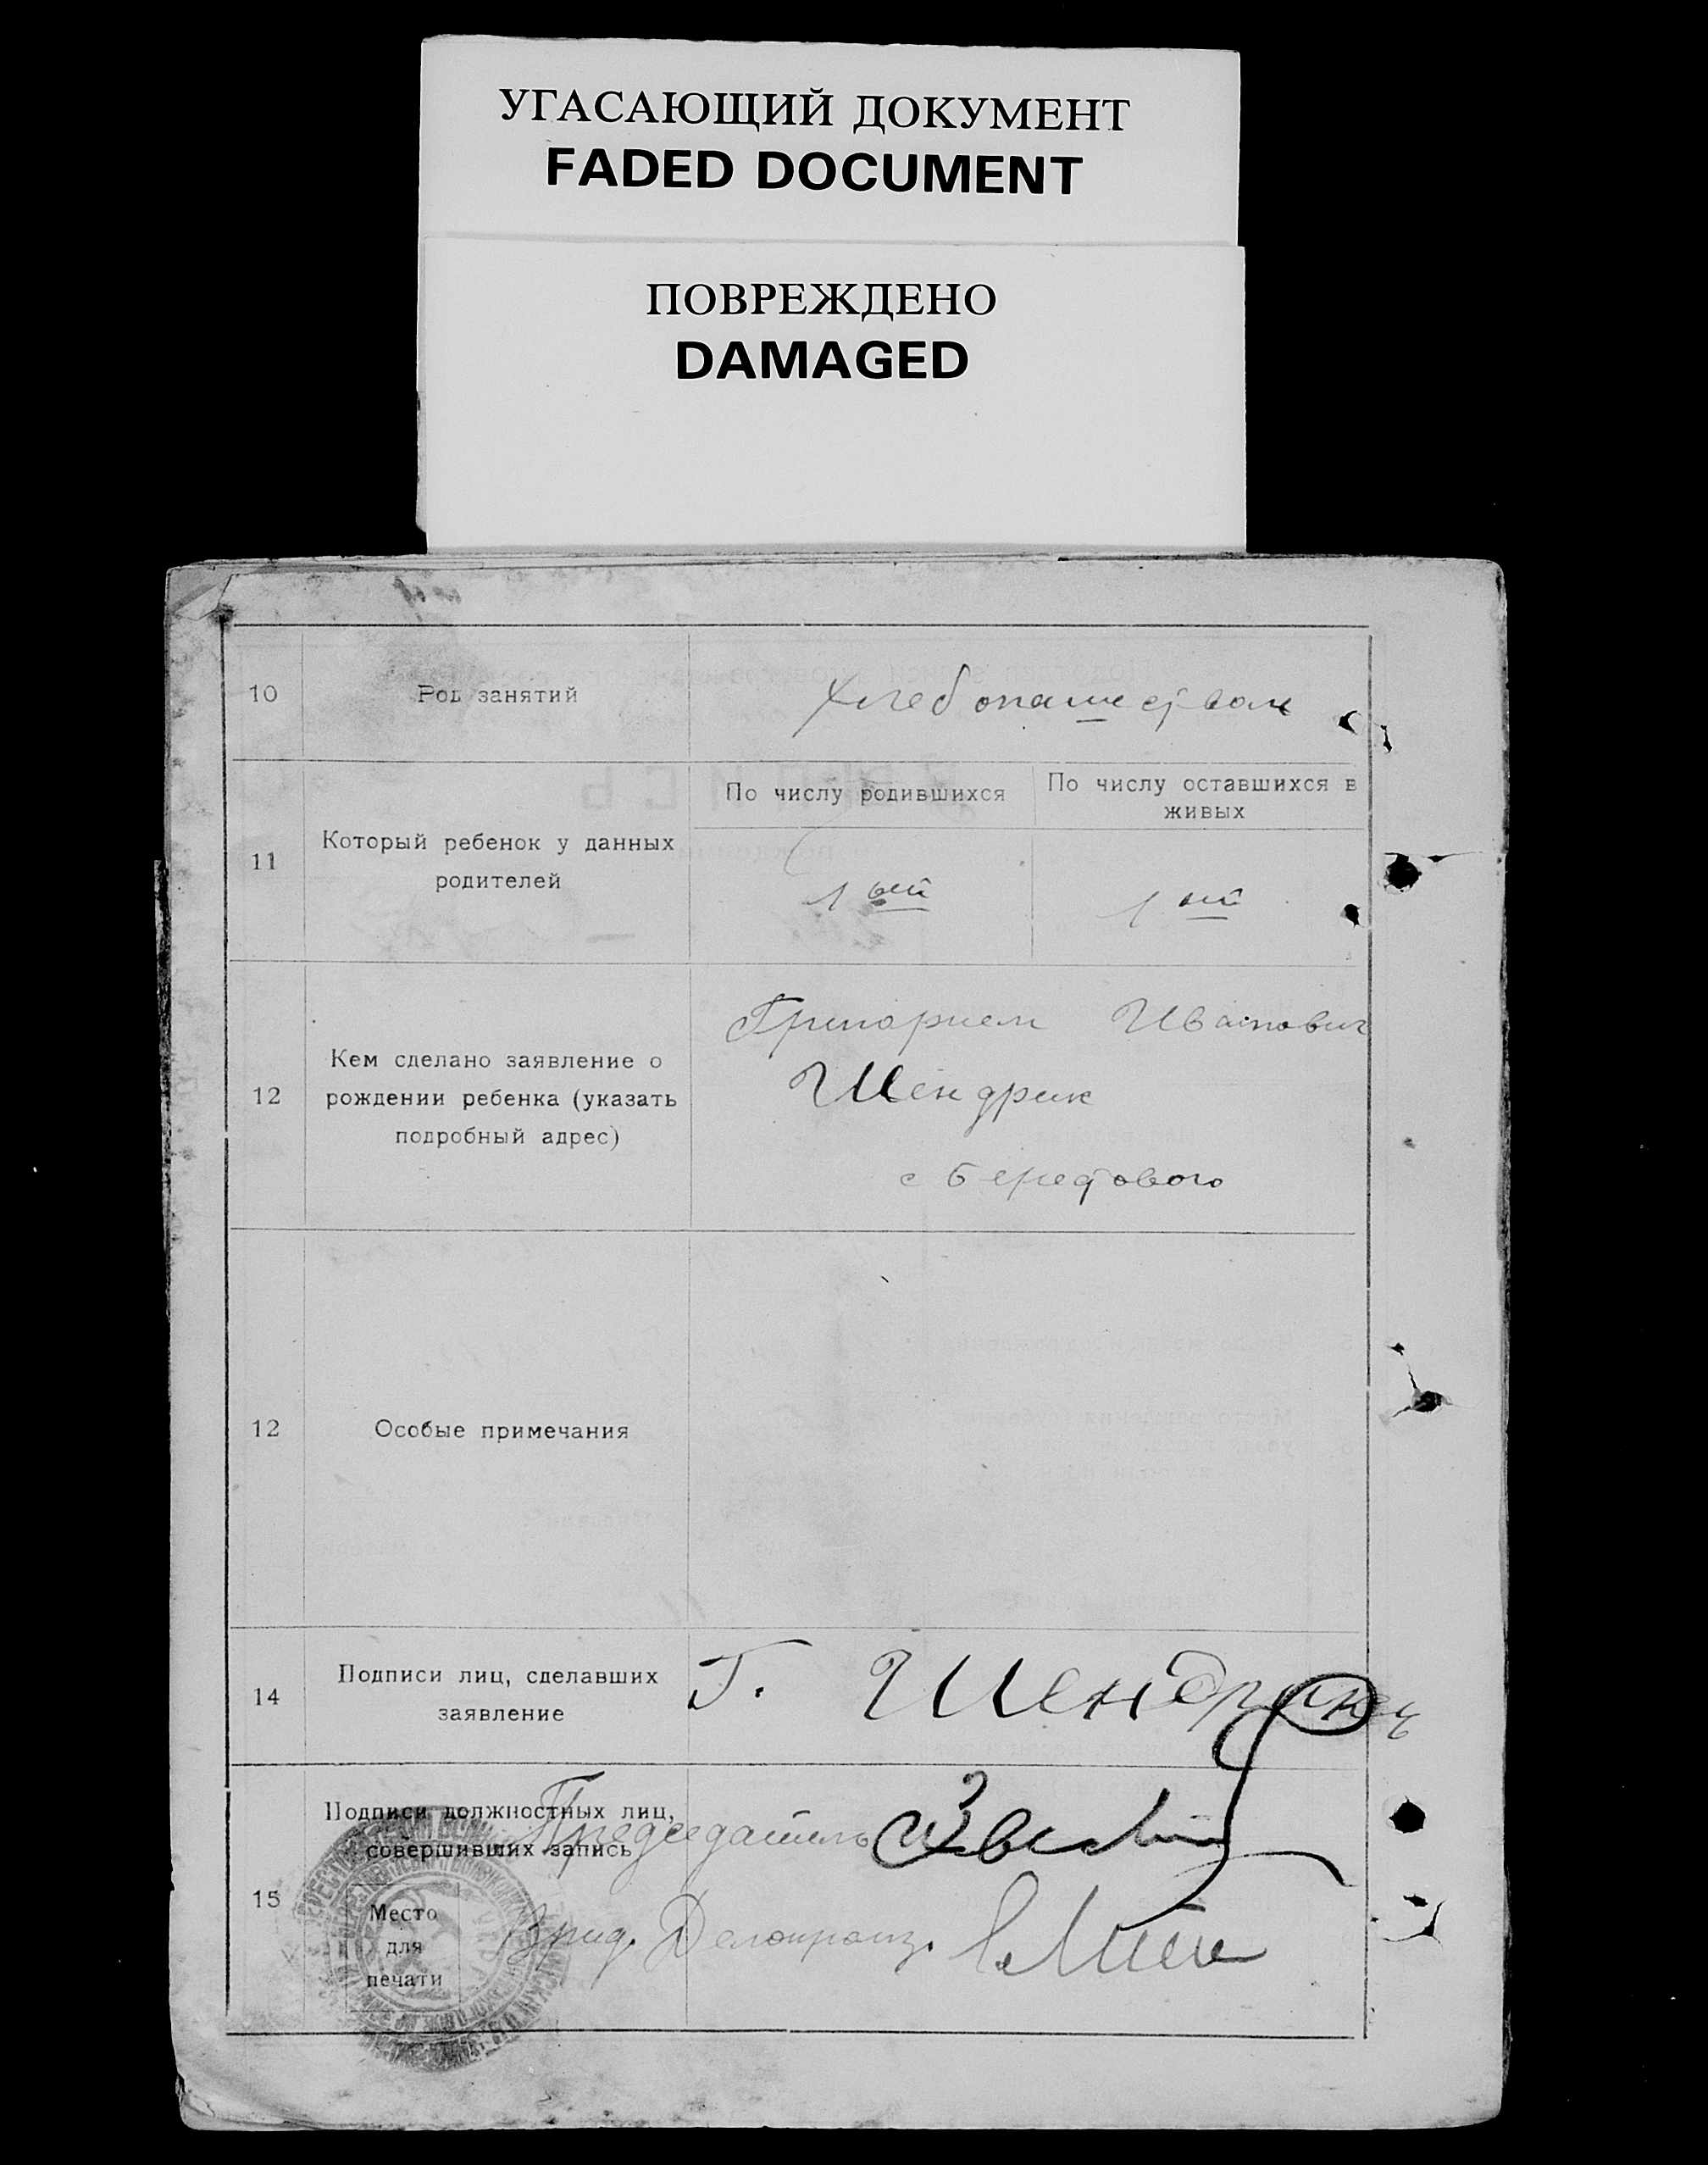 УГАСАЮЩИЙ ДОКУМЕНТ
FADED DOCUMENT
ПОВРЕЖДЕНО
DAMAGED
10
Род занятий
Хлебопашеством
11
Который ребенок у данных
родителей
По числу родившихся
По числу оставшихся в
живых
1 ый
1 ый
12
Кем сделано заявление о
рождении ребенка (указать
подробный адрес)
Григорием Иванович
Шендрик
с Берестового
12
Особые примечания
14
Подписи лиц, сделавших
заявление
Г. Шендрик
15
Подписи должностных лиц,
совершивших запись
Председатель
Место
для
печати
Врид. Делопроиз.